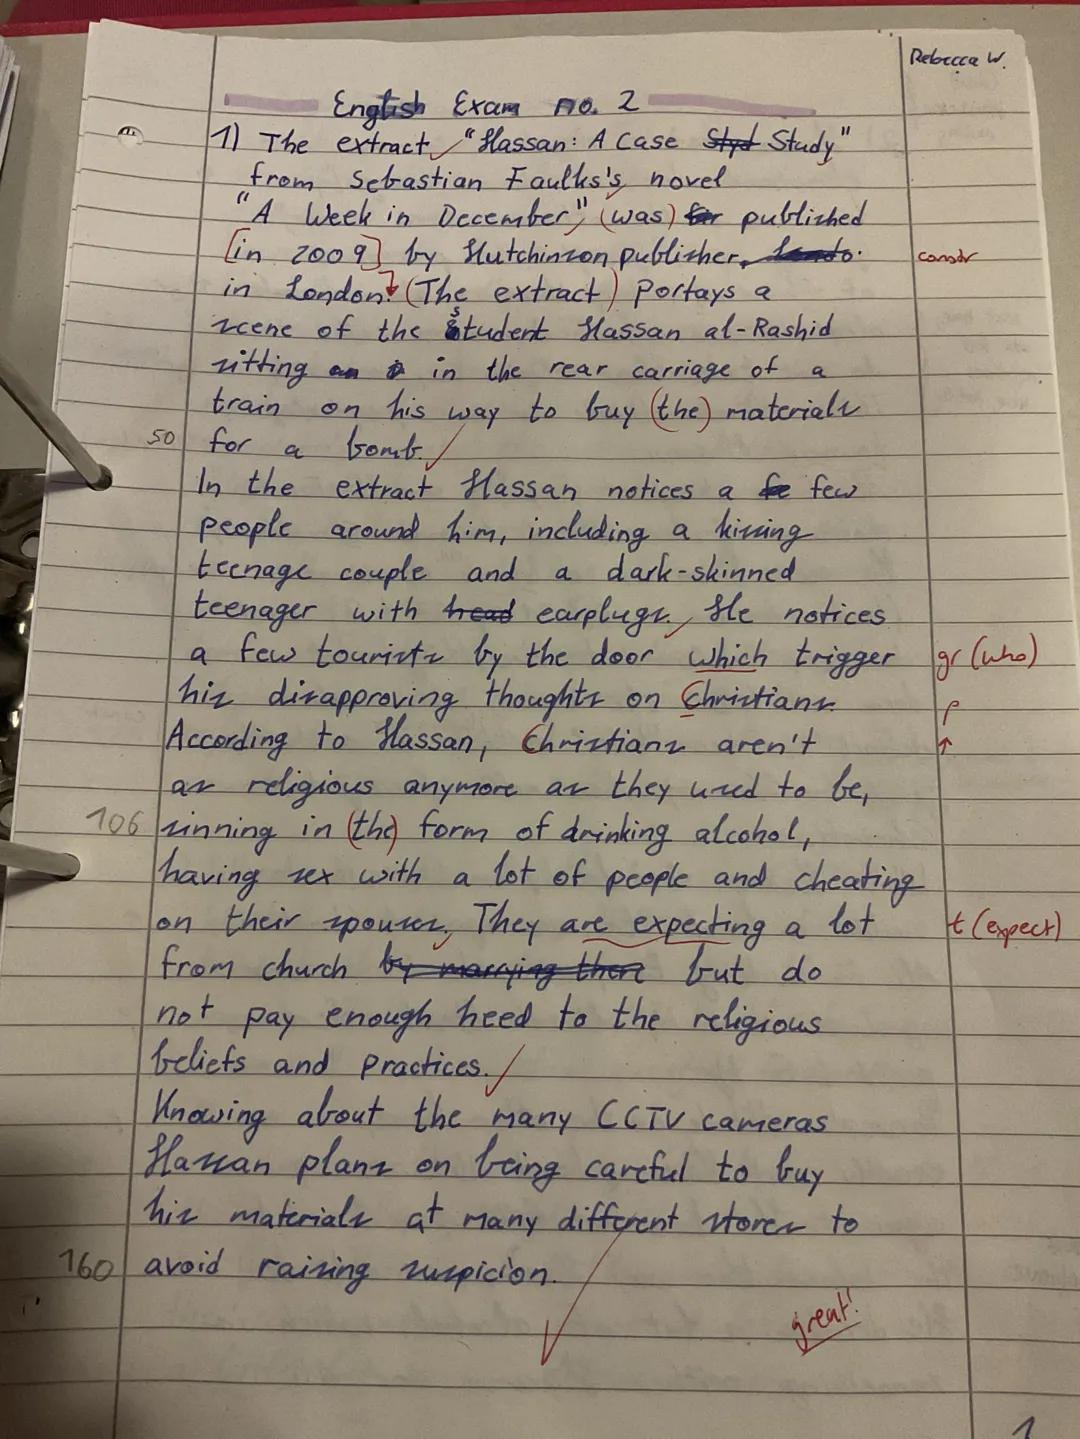 Rebecca W.
English Exam no. 2
1) The extract "Hassan: A Case Styd Study"
from Sebastian Faulks's novel
"A Week in December", (was) for published
[in 2009] by Hutchinson publisher, constr
in London. (The extract) portays a
scene of the student Hassan al-Rashid
sitting an in the rear carriage of a
train on his way to buy (the) materials
50 for a bomb.
In the extract Hassan notices a fe few
people around him, including a kissing
teenage couple and a dark-skinned
teenager with head earplugs. He notices
a few tourists by the door which trigger gr (who)
his disapproving thoughts on Christians. r
According to Hassan, Christians aren't ↑
as religious anymore as they used to be,
106 sinning in (the) form of drinking alcohol,
having sex with a lot of people and cheating
on their spouses. They are expecting a lot t (expect)
from church by marrying there but do
not pay enough heed to the religious
beliefs and practices.
Knowing about the many CCTV cameras
Hassan plans on being careful to buy
his materials at many different stores to
160 avoid raising suspicion.
great!
1